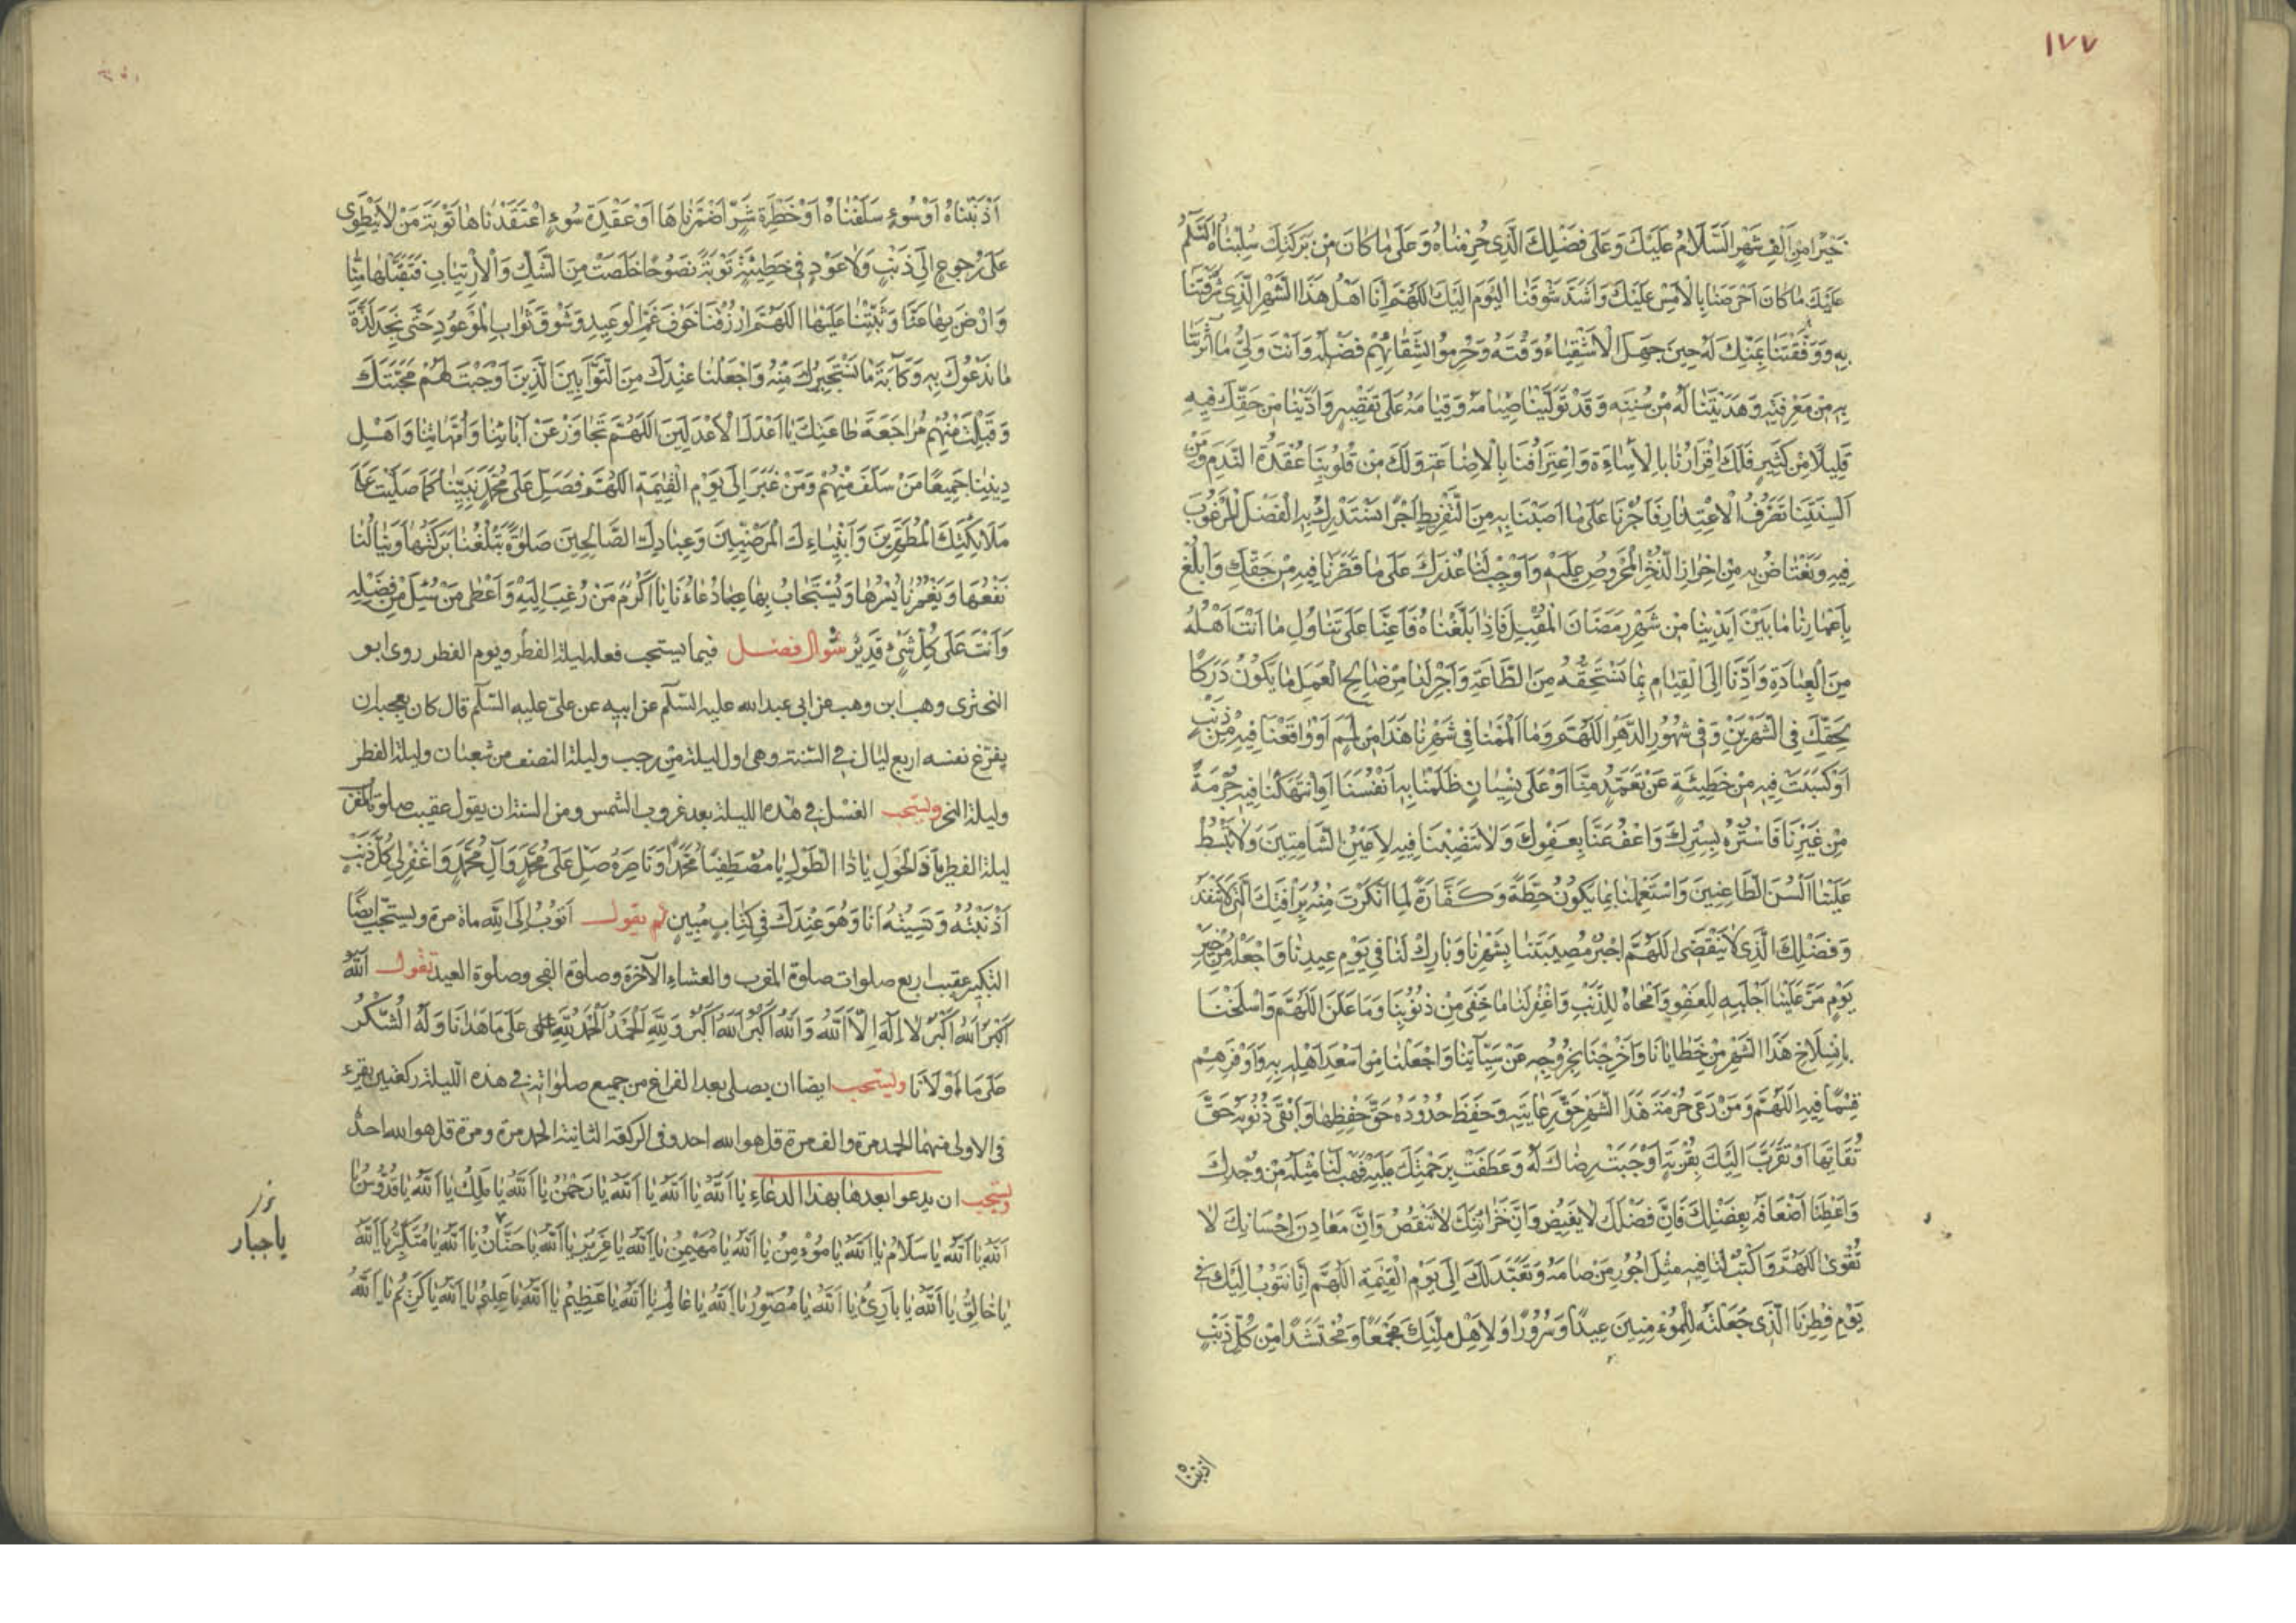 ١٧٧
خَيْرٌ مِنْ اَلْفِ شَهْرٍ اَلسَّلَامُ عَلَيْكَ وَعَلَى فَضْلِكَ الَّذِى حُرِمْنَاهُ وَعَلَى مَا كَانَ مِنْ بَرَكَتِكَ سُلِبْنَاهُ اَلسَّلَامُ
عَلَيْكَ مَا كَانَ اَحْرَصَنَا بِالْاَمْسِ عَلَيْكَ وَاَشَدَّ شَوْقَنَا الْيَوْمَ اِلَيْكَ اَللّٰهُمَّ اِنَّا اَهْلُ هَذَا الشَّهْرِ الَّذِى شَرَّفْتَنَا
بِهِ وَوَفَّقْتَنَا بِمَنِّكَ لَهُ حِينَ جَهِلَ الْاَشْقِيَاءُ وَقْتَهُ وَحُرِمُوا لِشَقَائِهِمْ فَضْلَهُ وَاَنْتَ وَلِىُّ مَا اٰثَرْتَنَا
بِهِ مِنْ مَعْرِفَتِهِ وَهَدَيْتَنَا لَهُ مِنْ سُنَّتِهِ وَقَدْ تَوَلَّيْنَا صِيَامَهُ وَقِيَامَهُ عَلَى تَقْصِيرٍ وَاَدَّيْنَا مِنْ حَقِّكَ فِيهِ
قَلِيلًا مِنْ كَثِيرٍ فَلَكَ اِقْرَارُنَا بِالْاِسَاءَةِ وَاعْتِرَافُنَا بِالْاِضَاعَةِ وَلَكَ مِنْ قُلُوبِنَا عُقْدَةُ النَّدَمِ وَمِنْ
اَلْسِنَتِنَا تَصَرُّفُ الْاِعْتِذَارِ فَاْجُرْنَا عَلَى مَا اَصَبْنَا بِهِ مِنَ التَّفْرِيطِ اَجْرًا نَسْتَدْرِكُ بِهِ الْفَضْلَ الْمَرْغُوبَ
فِيهِ وَنَعْتَاضُ بِهِ مِنْ اِحْرَازِ الذُّخْرِ الْمَحْرُوصِ عَلَيْهِ وَاَوْجِبْ لَنَا عُذْرَكَ عَلَى مَا قَصَّرْنَا فِيهِ مِنْ حَقِّكَ وَابْلُغْ
بِاَعْمَارِنَا مَا بَيْنَ اَيْدِينَا مِنْ شَهْرِ رَمَضَانَ الْمُقْبِلِ فَاِذَا بَلَّغْتَنَاهُ فَاَعِنَّا عَلَى تَنَاوُلِ مَا اَنْتَ اَهْلُهُ
مِنَ الْعِبَادَةِ وَاَدِّنَا اِلَى الْقِيَامِ بِمَا تَسْتَحِقُّهُ مِنَ الطَّاعَةِ وَاَجْرِ لَنَا مِنْ صَالِحِ الْعَمَلِ مَا يَكُونُ دَرَكًا
بِحَقِّكَ فِى الشَّهْرَيْنِ وَفِى شُهُورِ الدَّهْرِ اَللّٰهُمَّ وَمَا اَلْمَمْنَا فِى شَهْرِنَا هَذَا مِنْ لَمَمٍ اَوْ وَاقَعْنَا فِيهِ مِنْ ذَنْبٍ
اَوْ كَسَبْتَ فِيهِ مِنْ خَطِيئَةٍ عَنْ تَعَمُّدٍ مِنَّا اَوْ عَلَى نِسْيَانٍ ظَلَمْنَا بِهِ اَنْفُسَنَا اَوِ انْتَهَكْنَا فِيهِ حُرْمَةً
مِنْ غَيْرِنَا فَاسْتُرْهُ بِسِتْرِكَ وَاعْفُ عَنَّا بِعَفْوِكَ وَلَا تَنْصِبْنَا فِيهِ لِاَعْيُنِ الشَّامِتِينَ وَلَا تَبْسُطْ
عَلَيْنَا اَلْسُنَ الطَّاعِنِينَ وَاسْتَعْمِلْنَا بِمَا يَكُونُ حِطَّةً وَكَفَّارَةً لِمَا اَنْكَرْتَ مِنْهُ بِرَاْفَتِكَ الَّتِى لَا تَنْفَدُ
وَفَضْلِكَ الَّذِى لَا يَنْقَضِى اَللّٰهُمَّ اجْبُرْ مُصِيبَتَنَا بِشَهْرِنَا وَبَارِكْ لَنَا فِى يَوْمِ عِيدِنَا وَاجْعَلْهُ مِنْ خَيْرِ
يَوْمٍ مَرَّ عَلَيْنَا اَجْلَبِهِ لِلْعَفْوِ وَاَمْحَاهُ لِلذَّنْبِ وَاغْفِرْ لَنَا مَا خَفِىَ مِنْ ذُنُوبِنَا وَمَا عَلَنَ اَللّٰهُمَّ وَاسْلَخْنَا
بِانْسِلَاخِ هَذَا الشَّهْرِ مِنْ خَطَايَانَا وَاَخْرِجْنَا بِخُرُوجِهِ عَنْ سَيِّاٰتِنَا وَاجْعَلْنَا مِنْ اَسْعَدِ اَهْلِهِ بِهِ وَاَوْفَرِهِمْ
قِسْمًا فِيهِ اَللّٰهُمَّ وَمَنْ رَعَى حُرْمَةَ هَذَا الشَّهْرِ حَقَّ رِعَايَتِهِ وَحَفِظَ حُدُودَهُ حَقَّ حِفْظِهَا وَاتَّقَى ذُنُوبَهُ حَقَّ
تُقَاتِهَا اَوْ تَقَرَّبَ اِلَيْكَ بِقُرْبَةٍ اَوْجَبَتْ رِضَاكَ لَهُ وَعَطَفَتْ بِرَحْمَتِكَ عَلَيْهِ فَهَبْ لَنَا مِثْلَهُ مِنْ وُجْدِكَ
وَاَعْطِنَا اَضْعَافَهُ بِفَضْلِكَ فَاِنَّ فَضْلَكَ لَا يَغِيضُ وَاِنَّ خَزَائِنَكَ لَا تَنْقُصُ وَاِنَّ مَعَادِنَ اِحْسَانِكَ لَا
تُقْوَى اَللّٰهُمَّ وَاكْتُبْ لَنَا فِيهِ مِثْلَ اُجُورِ مَنْ صَامَهُ وَتَعَبَّدَ لَكَ اِلَى يَوْمِ الْقِيٰمَةِ اَللّٰهُمَّ اِنَّا نَتُوبُ اِلَيْكَ فِى
يَوْمِ فِطْرِنَا الَّذِى جَعَلْتَهُ لِلْمُؤْمِنِينَ عِيدًا وَسُرُورًا وَلِاَهْلِ مِلَّتِكَ مَجْمَعًا وَمُحْتَشَدًا مِنْ كُلِّ ذَنْبٍ
اذنبناه
اَذْنَبْنَاهُ اَوْ سُوءٍ سَلَفْنَاهُ اَوْ خَطْرَةِ شَرٍّ اَضْمَرْنَاهَا اَوْ عَقِيدَةِ سُوءٍ اعْتَقَدْنَاهَا تَوْبَةَ مَنْ لَا يَنْطَوِى
عَلَى رُجُوعٍ اِلَى ذَنْبٍ وَلَا عَوْدٍ فِى خَطِيئَةٍ تَوْبَةً نَصُوحًا خَلَصَتْ مِنَ الشَّكِّ وَالْاِرْتِيَابِ فَتَقَبَّلْهَا مِنَّا
وَارْضَ بِهَا عَنَّا وَثَبِّتْنَا عَلَيْهَا اَللّٰهُمَّ ارْزُقْنَا خَوْفَ غَمِّ الْوَعِيدِ وَشَوْقَ ثَوَابِ الْمَوْعُودِ حَتَّى نَجِدَ لَذَّةَ
مَا نَدْعُوكَ بِهِ وَكَاٰبَةَ مَا نَسْتَجِيرُكَ مِنْهُ وَاجْعَلْنَا عِنْدَكَ مِنَ التَّوَّابِينَ الَّذِينَ اَوْجَبْتَ لَهُمْ مَحَبَّتَكَ
وَقَبِلْتَ مِنْهُمْ مُرَاجَعَةَ طَاعَتِكَ يَا اَعْدَلَ الْاَعْدَلِينَ اَللّٰهُمَّ تَجَاوَزْ عَنْ اٰبَائِنَا وَاُمَّهَاتِنَا وَاَهْلِ
دِينِنَا جَمِيعًا مَنْ سَلَفَ مِنْهُمْ وَمَنْ غَبَرَ اِلَى يَوْمِ الْقِيٰمَةِ اَللّٰهُمَّ فَصَلِّ عَلَى مُحَمَّدٍ نَبِيِّنَا كَمَا صَلَّيْتَ عَلَى
مَلٰئِكَتِكَ الْمُطَهَّرِينَ وَاَنْبِيَاءِكَ الْمَرْضِيِّينَ وَعِبَادِكَ الصَّالِحِينَ صَلٰوةً تَبْلُغُنَا بَرَكَتُهَا وَيَنَالُنَا
نَفْعُهَا وَيَغْمُرُنَا يُسْرُهَا وَيُسْتَجَابُ بِهَا دُعَاءُنَا يَا اَكْرَمَ مَنْ رُغِبَ اِلَيْهِ وَاَعْطَى مَنْ سُئِلَ مِنْ فَضْلِهِ
وَاَنْتَ عَلَى كُلِّ شَىْءٍ قَدِيرٌ شوال فصل فيما يستحب فعله ليلة الفطر ويوم الفطر روى ابو
البخترى وهب ابن وهب عن ابى عبدالله عليه السّلم عن ابيه عن علىّ عليه السّلم قال كان يعجبه ان
يفرّغ نفسه اربع ليال فى السّنة وهى اول ليلة من رجب وليلة النصف من شعبان وليلة الفطر
وليلة النحر ويستحب الغسل فى هذه الليلة بعد غروب الشمس ومن السنة ان يقول عقيب صلوة المغرب
ليلة الفطر يَا ذَا الْحَوْلِ يَا ذَا الطَّوْلِ يَا مُصْطَفِيًا مُحَمَّدًا وَنَاصِرَهُ صَلِّ عَلَى مُحَمَّدٍ وَآلِ مُحَمَّدٍ وَاغْفِرْ لِى كُلَّ ذَنْبٍ
اَذْنَبْتُهُ وَنَسِيتُهُ اَنَا وَهُوَ عِنْدَكَ فِى كِتَابٍ مُبِينٍ ثم يقول اَتُوبُ اِلَى اللّٰهِ ماة مرة ويستحب ايضًا
التكبير عقيب اربع صلوات صلوة المغرب والعشاء الآخرة وصلوة الفجر وصلوة العيد تقول اَللّٰهُ
اَكْبَرُ اَللّٰهُ اَكْبَرُ لَا اِلٰهَ اِلَّا اللّٰهُ وَاللّٰهُ اَكْبَرُ اَللّٰهُ اَكْبَرُ وَلِلّٰهِ الْحَمْدُ اَلْحَمْدُ لِلّٰهِ عَلَى مَا هَدٰنَا وَلَهُ الشُّكْرُ
عَلَى مَا اَوْلَانَا ويستحب ايضا ان يصلى بعد الفراغ من جميع صلواته فى هذه الليلة ركعتين يقرء
فى الاولى منهما الحمد مرة والف مرة قل هو الله احد وفى الركعة الثانية الحمد مرة ومرة قل هو الله احد
ويستحب ان يدعوا بعدها بهذا الدعاء يَا اَللّٰهُ يَا اَللّٰهُ يَا اَللّٰهُ يَا رَحْمٰنُ يَا اَللّٰهُ يَا مَلِكُ يَا اَللّٰهُ يَا قُدُّوسُ يَا
اَللّٰهُ يَا اَللّٰهُ يَا سَلَامُ يَا اَللّٰهُ يَا مُؤْمِنُ يَا اَللّٰهُ يَا مُهَيْمِنُ يَا اَللّٰهُ يَا عَزِيزُ يَا اَللّٰهُ يَا حَنَّانُ يَا اَللّٰهُ يَا مُتَكَبِّرُ يَا اَللّٰهُ
يَا خَالِقُ يَا اَللّٰهُ يَا بَارِئُ يَا اَللّٰهُ يَا مُصَوِّرُ يَا اَللّٰهُ يَا عَالِمُ يَا اَللّٰهُ يَا عَظِيمُ يَا اَللّٰهُ يَا عَلِيمُ يَا اَللّٰهُ يَا كَرِيمُ يَا اَللّٰهُ
يا جبار